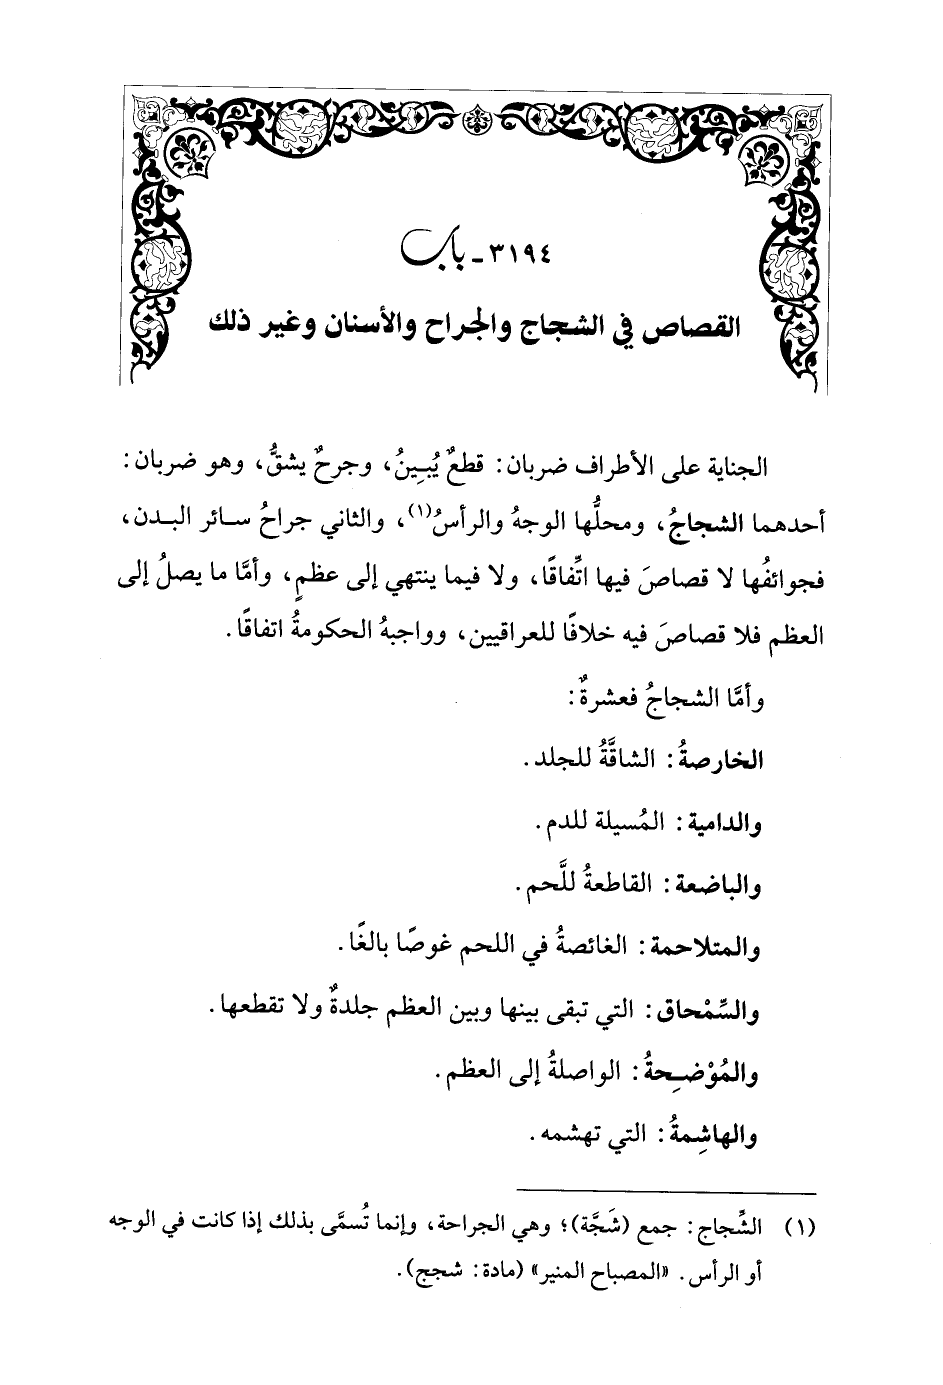 ٣١٩٤ ـ باب
القصاص في الشجاج والجراح والأسنان وغير ذلك
الجناية على الأطراف ضربان: قطعٌ يُبِينُ، وجرحٌ يشقُّ، وهو ضربان:
أحدهما الشجاجُ، ومحلُّها الوجهُ والرأسُ(١)، والثاني جراحُ سائر البدن،
فجوائفُها لا قصاصَ فيها اتِّفاقًا، ولا فيما ينتهي إلى عظمٍ، وأمَّا ما يصلُ إلى
العظم فلا قصاصَ فيه خلافًا للعراقيين، وواجبهُ الحكومةُ اتفاقًا.
وأمَّا الشجاجُ فعشرةٌ:
الخارصةُ: الشاقَّةُ للجلد.
والدامية: المُسيلة للدم.
والباضعة: القاطعةُ للَّحم.
والمتلاحمة: الغائصةُ في اللحم غوصًا بالغًا.
والسِّمْحاق: التي تبقى بينها وبين العظم جلدةٌ ولا تقطعها.
والمُوْضِحةُ: الواصلةُ إلى العظم.
والهاشِمةُ: التي تهشمه.
(١) الشِّجاج: جمع (شَجَّة)؛ وهي الجراحة، وإنما تُسمَّى بذلك إذا كانت في الوجه
أو الرأس. «المصباح المنير» (مادة: شجج).